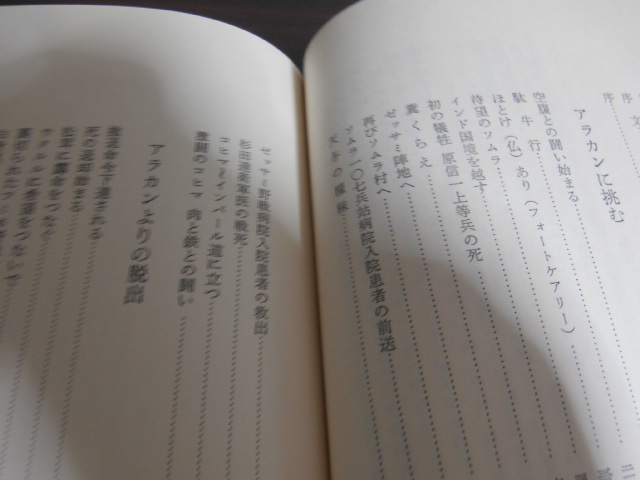 序
序文
アラカンに挑む
空腹との闘い始まる
駄牛行
ほとけ（仏）あり（フォートケアリー）
待望のソムラ
インド国境を越す
初の犠牲 原信一上等兵の死
糞くらえ
ゼッサミ陣地へ
再びソムラ村へ
ソムラ一〇七兵站病院入院患者の前送
ゼッサミ野戦病院入院患者の救出
コヒマとインパール道に立つ
激闘のコヒマ 肉と鉄との闘い
アラカンよりの脱出
撤退命令下達される
死の退却始まる